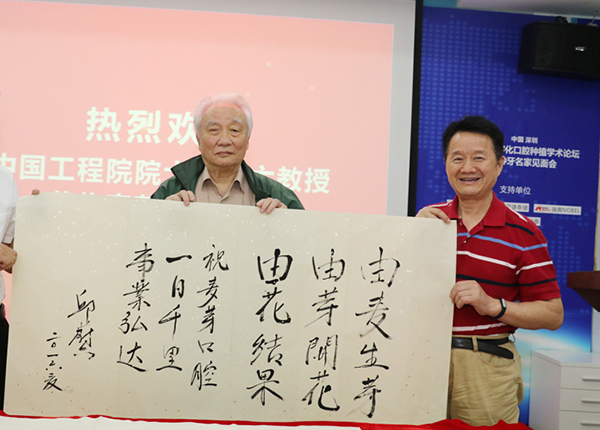 热烈欢
中国工程院院
教授
中国 深圳
化口腔种植学术论坛
牙名家见面会
支持单位
瑞典NOBEL
由麦生芽
由芽開花
由花结果
祝麦芽口腔
一日千里
事業弘达
邱蔚六
二〇一六夏